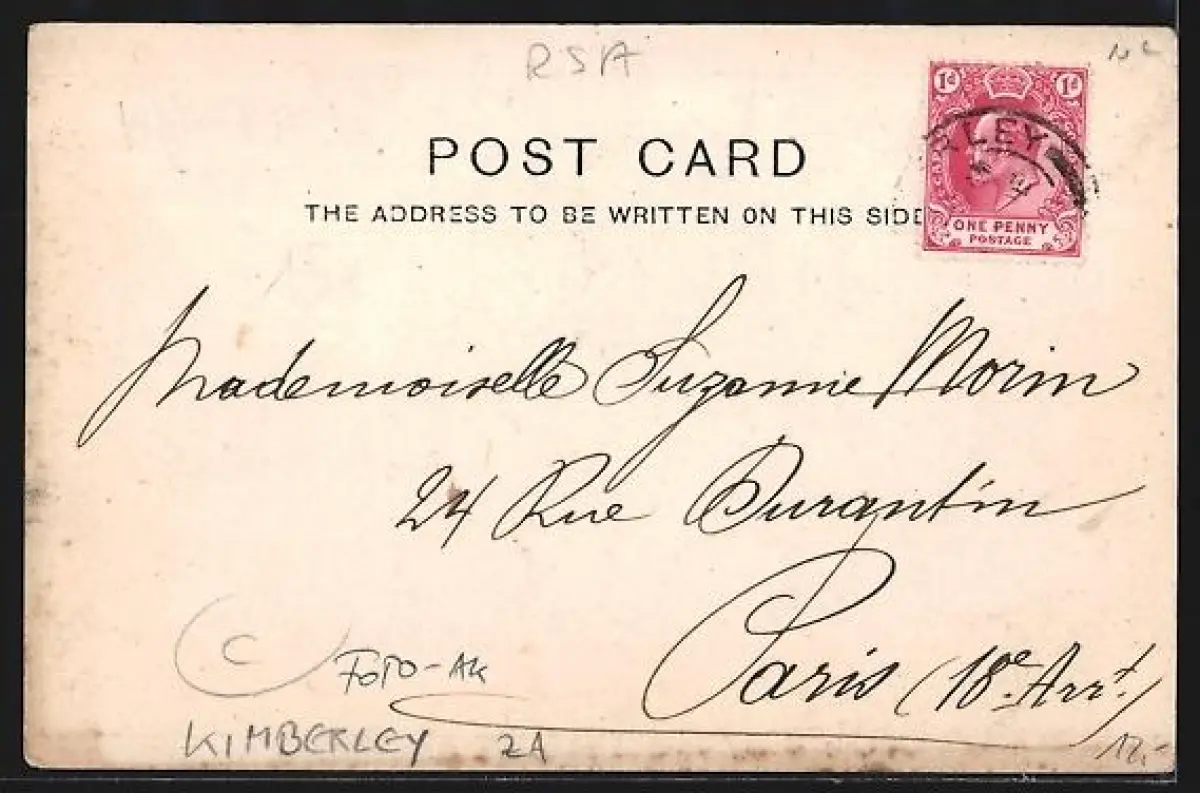 RSA
POST CARD
THE ADDRESS TO BE WRITTEN ON THIS SIDE
1d 1d
LEY
ONE PENNY
POSTAGE
Mademoiselle Suzanne Morin
24 Rue Durantin
Paris (18e Arrt.)
C
FOTO-AK
KIMBERLEY ZA
12,-